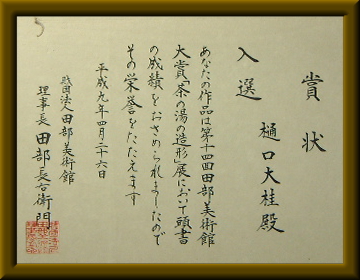 賞状
樋口大桂殿
入選
あなたの作品は第十四回田部美術館
大賞「茶の湯の造形」展において頭書
の成績をおさめられましたので
その栄誉をたたえます
平成九年四月二十六日
財団法人田部美術館
理事長 田部長右衛門